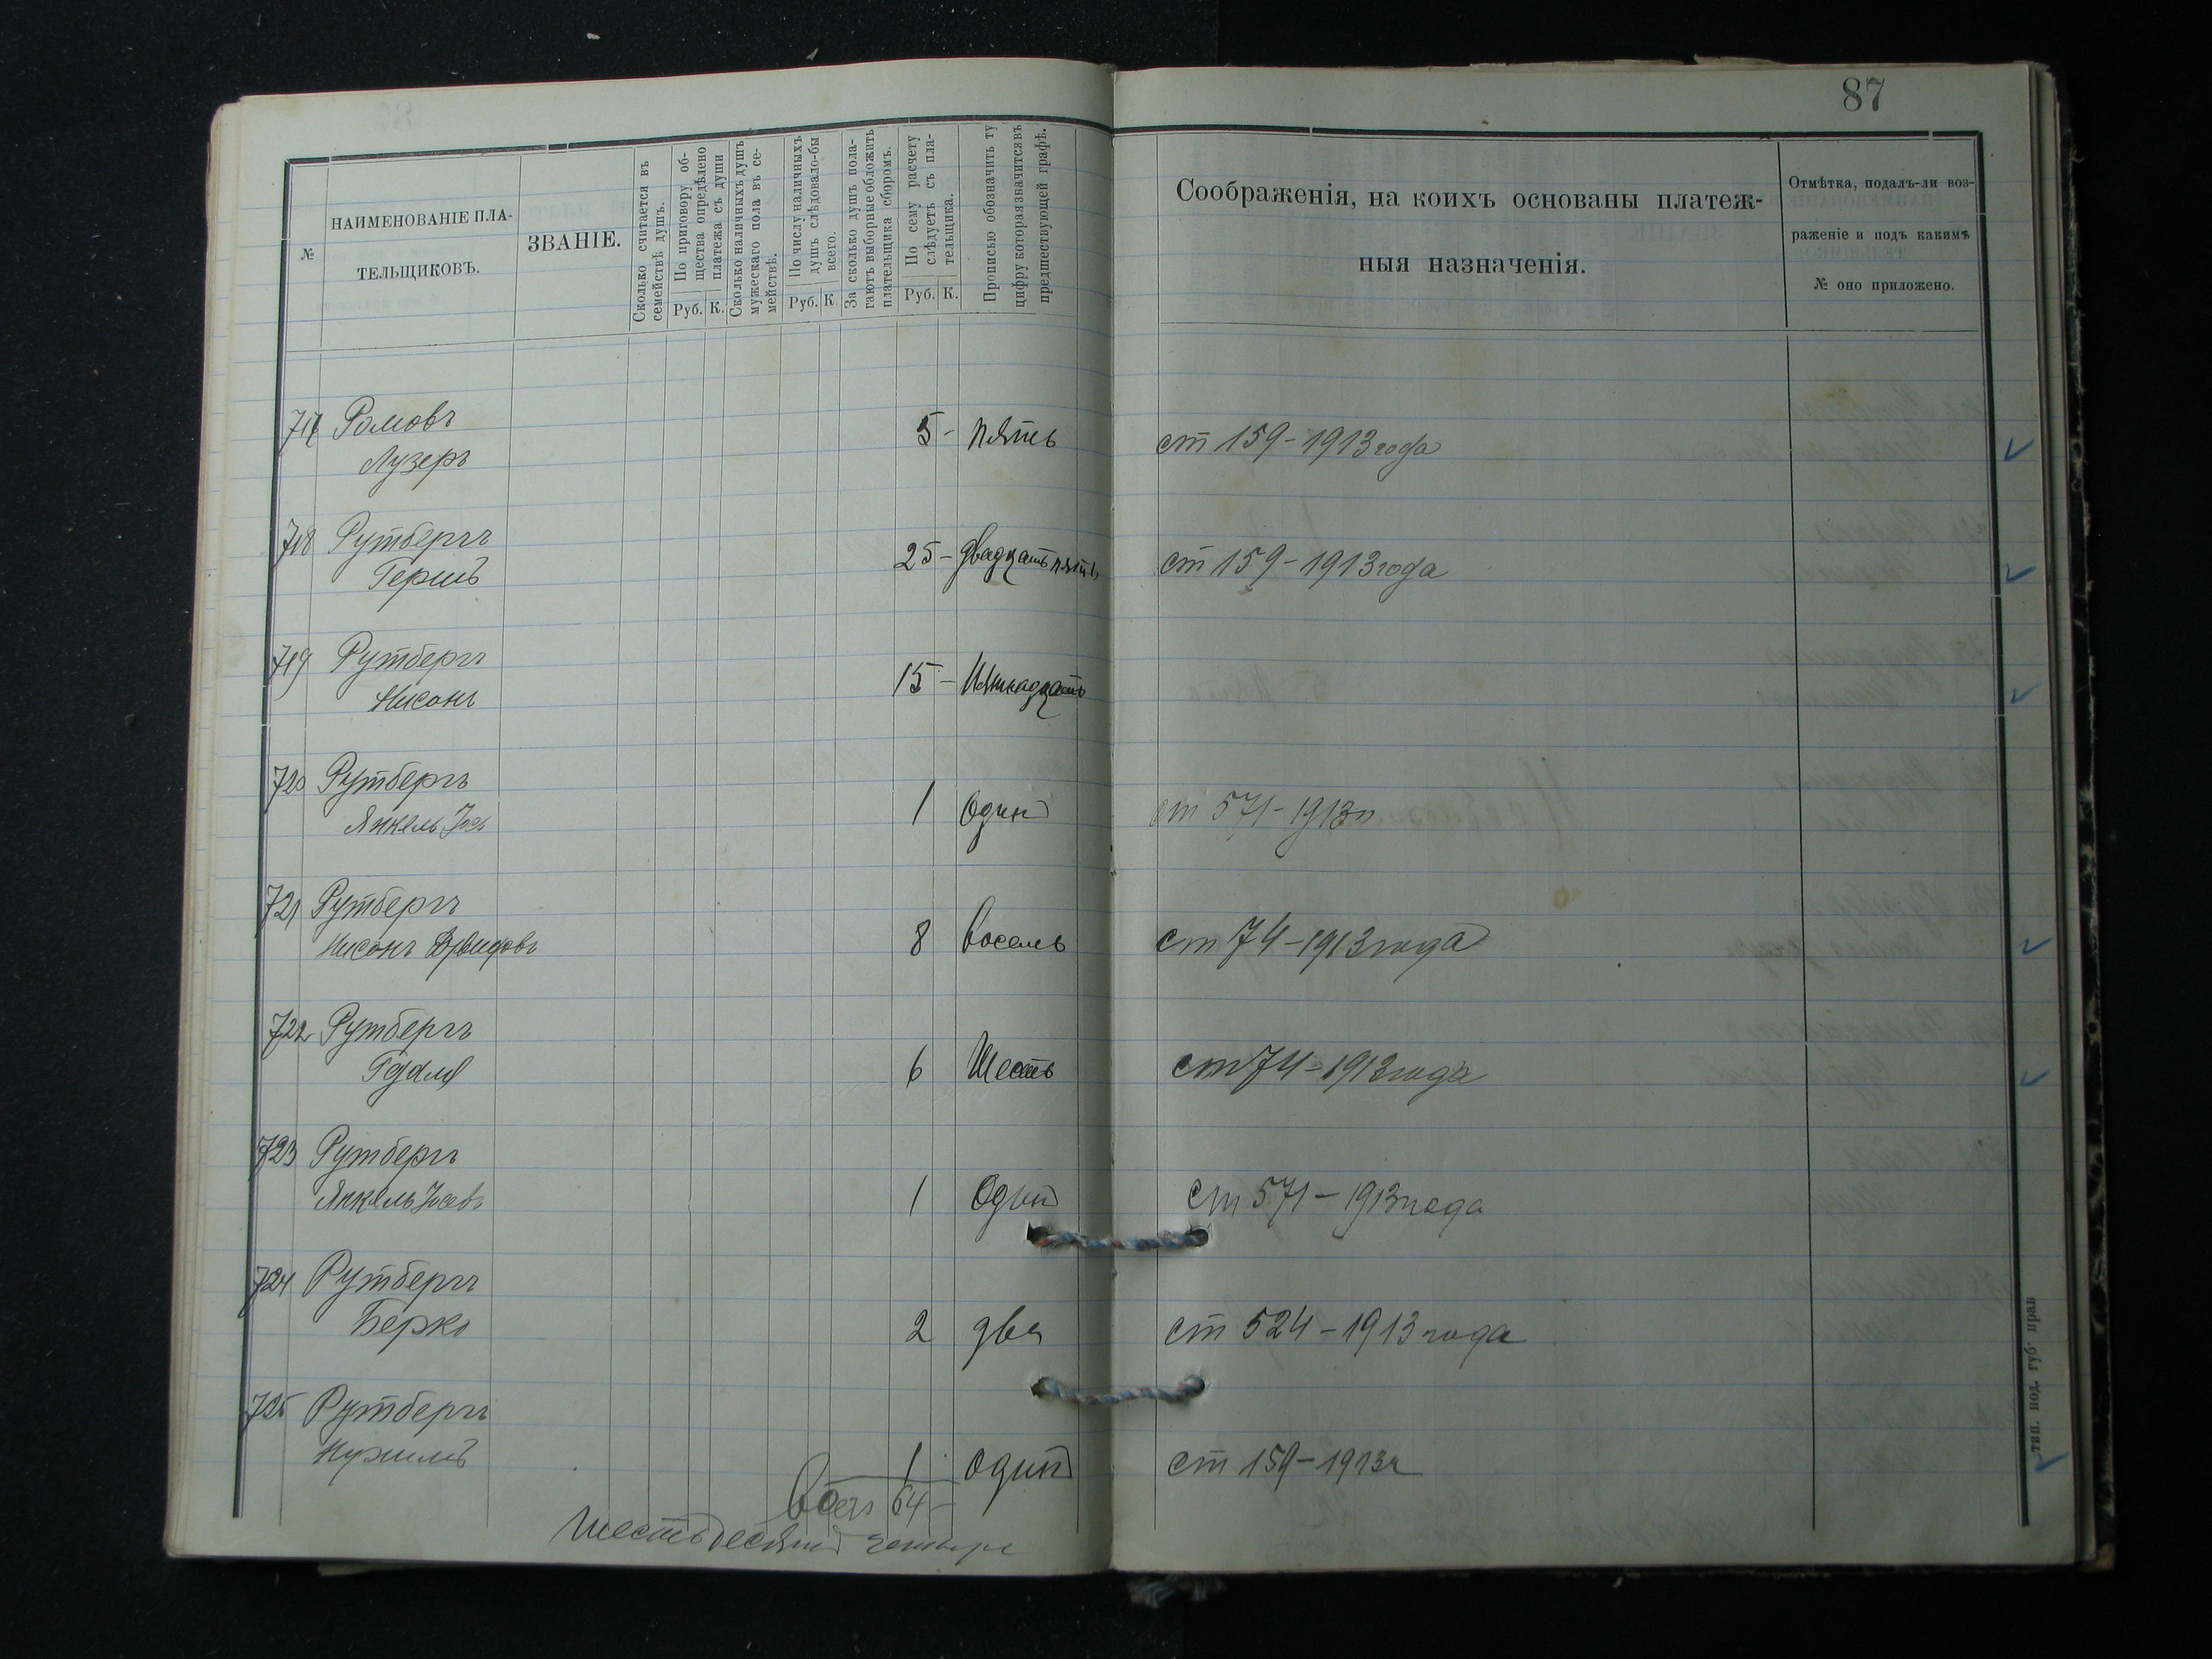 87
№
НАИМЕНОВАНІЕ ПЛА-
ТЕЛЬЩИКОВЪ.
ЗВАНІЕ.
Сколько считается въ
семействѣ душъ.
По приговору об-
щества опредѣлено
платежа съ души
Руб. К.
Сколько наличныхъ душъ
мужескаго пола въ се-
мействѣ.
По числу наличныхъ
душъ слѣдовало-бы
всего.
Руб. К.
За сколько душъ пола-
гаютъ выборные обложить
плательщика сборомъ.
По сему расчету
слѣдуетъ съ пла-
тельщика.
Руб. К.
Прописью обозначить ту
цифру которая значится въ
предшествующей графѣ.
Соображенія, на коихъ основаны платеж-
ныя назначенія.
Отмѣтка, подалъ-ли воз-
раженіе и подъ какимъ
№ оно приложено.
Ромовъ
Лузеръ 5 - пять ст 159-1913 года
718 Рутбергъ
Гершъ 25 - двадцать пять ст 159-1913 года
719 Рутбергъ
Нисонъ 15 - Пятнадцать
720 Рутбергъ
Янкель Іось 1 Один ст 571-1913г
721 Рутбергъ
Нисонъ Давидовъ 8 восемь ст 74-1913 года
722 Рутбергъ
Гдаля 6 Шесть ст 74-1913 года
723 Рутбергъ
Янкель Іосевъ 1 Один ст 571-1913 года
724 Рутбергъ
Берко 2 два ст 524-1913 года
725 Рутбергъ
1 один ст 159-1913г
всего 64-
Шестьдесят четыре
тип. под. губ. прав